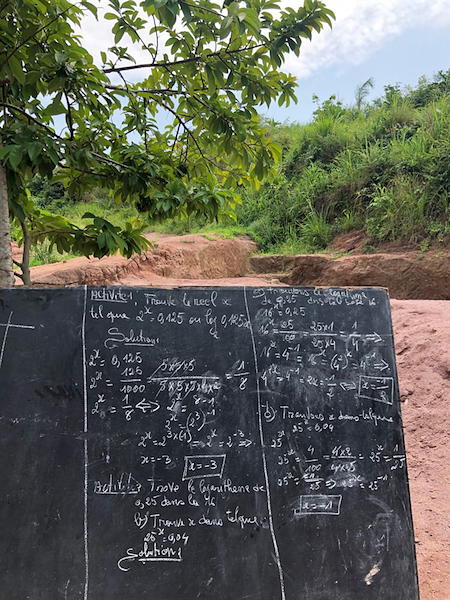 Activité 1 Trouve le réel x
tel que 2^x = 0,125 ou log 0,125
Solution:
2^x = 0,125
2^x = 125/1000 = 5x5x5/5x5x5x4x2 = 1/8
2^x = 1/8 <=> 2^x = 8^-1
2^x = (2^3)^-1
2^x = 2^3x(-1) = 2^x = 2^-3 =>
x = -3 x = -3
Activité: Trouve le logarithme de
0,25 dans la
b) Trouve x dans telque
25^x = 0,04
Solution:
a) trouvons le logarithme
de 0,25 dans base 16
16^x = 0,25
16^x = 25/100 = 25x1/25x4 = 1/4 =>
16^x = 4^-1 16^x = (4^2)^x = 4^-1
4^2x = 4^-1 2x = -1/2
b) Trouvons x dans telque
25^x = 0,04
25^x = 4/100 = 4x1/4x25 = 25^x = 1/25
25^x = 1/25 => 25^x = 25^-1
x = -1